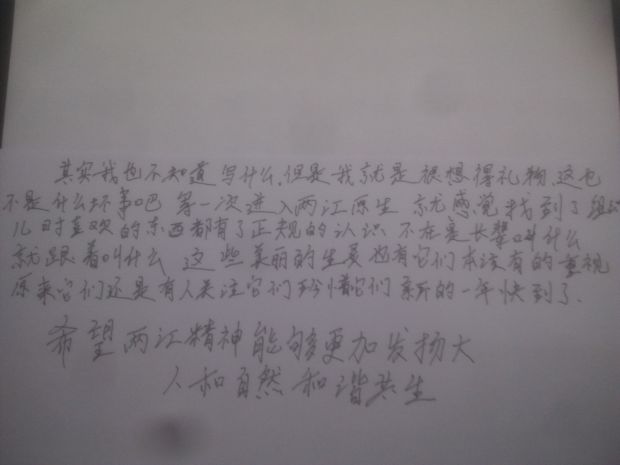 其实我也不知道写什么.但是我就是很想得礼物.这也
不是什么坏事吧 第一次进入两江原生 就感觉找到了组织
儿时喜欢的东西都有了正规的认识 不在是长辈叫什么
就跟着叫什么 这些美丽的生灵也有它们本该有的重视
原来它们还是有人关注它们珍惜它们 新的一年快到了.
希望两江精神能够更加发扬大
人和自然和谐共生